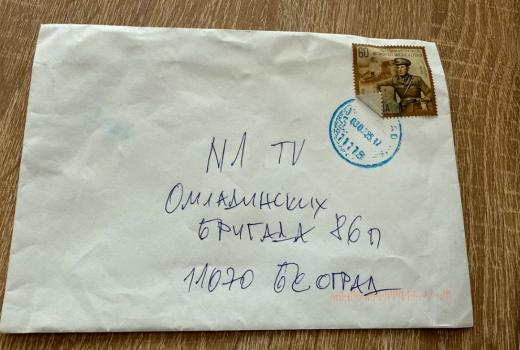 60
11118
N1 TV
ОМЛАДИНСКИХ
БРИГАДА 86п
11070 БЕОГРАД